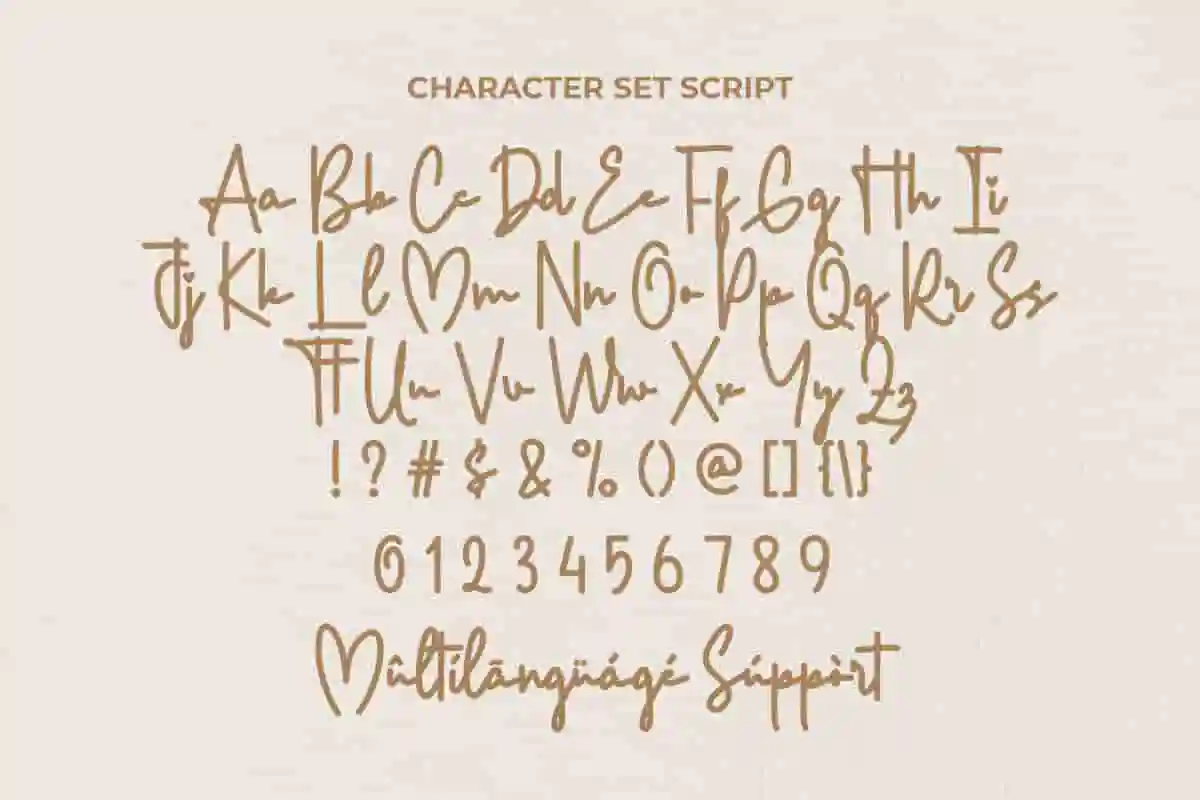 CHARACTER SET SCRIPT
Aa Bb Cc Dd Ee Ff Gg Hh Ii
Jj Kk Ll Mm Nn Oo Pp Qq Rr Ss
Tt Uu Vv Ww Xx Yy Zz
! ? # $ & % () @ [] {\}
0 1 2 3 4 5 6 7 8 9
Mûltílãngüágé Súppòrt